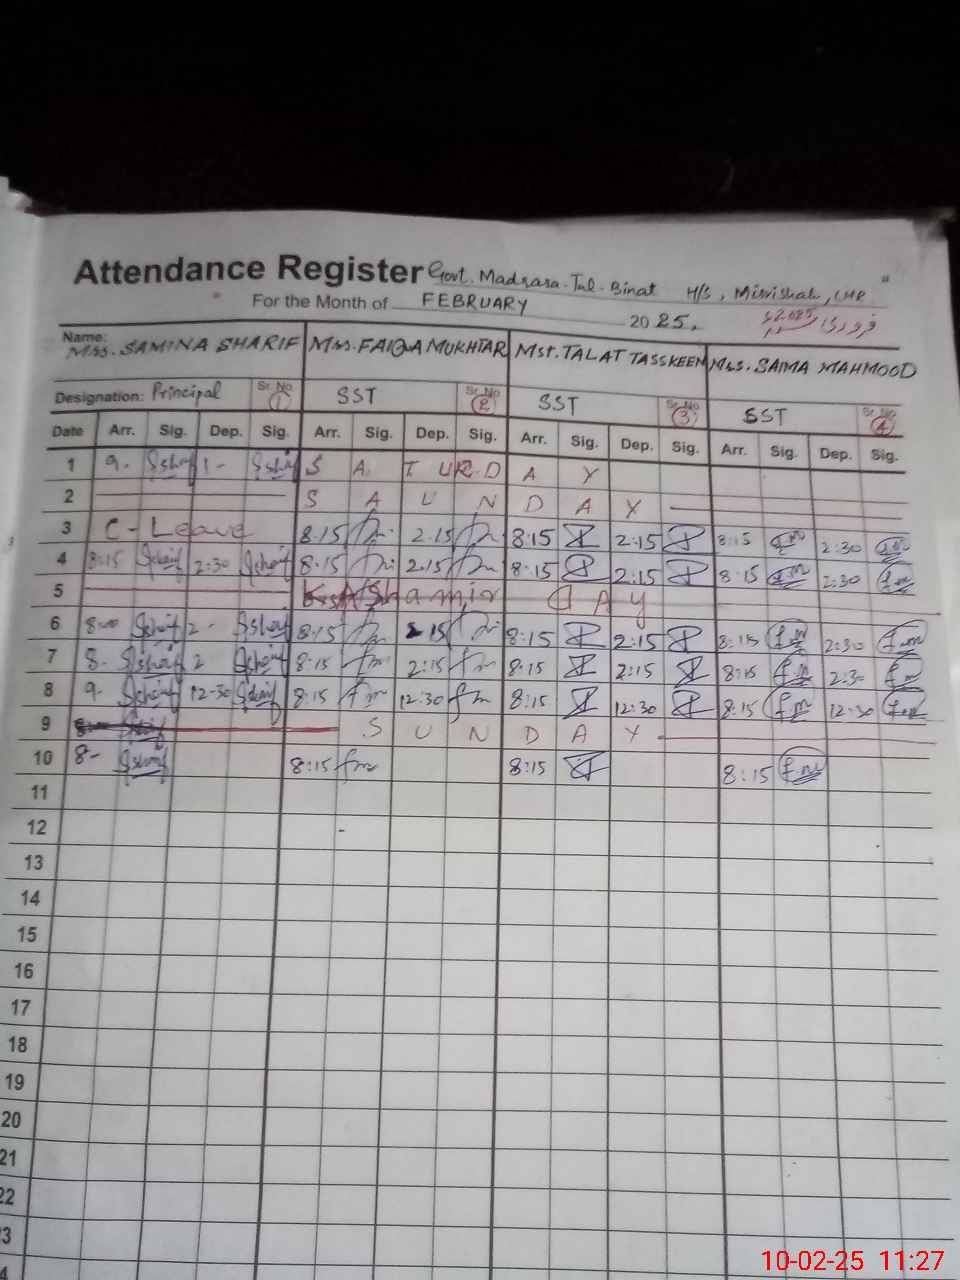 Attendance Register Govt. Madrasa-Tul-Binat H/S, Misrishah, LHR
For the Month of FEBRUARY 2025.
فروری 2025
Name: Mrs. SAMINA SHARIF Mrs. FAIQA MUKHTAR Mst. TALAT TASSKEEN Mrs. SAIMA MAHMOOD
Designation: Principal Sr. No 1 SST Sr. No 2 SST Sr. No 3 SST Sr. No 4
Date Arr. Sig. Dep. Sig. Arr. Sig. Dep. Sig. Arr. Sig. Dep. Sig. Arr. Sig. Dep. Sig.
1 9- Sshaif 1- Sshaif S A T U R D A Y
2 S A U N D A Y
3 C-Leave 8.15 fm 2.15 fm 8:15 2:15 8:15 2:30
4 8:15 Sshaif 2:30 Sshaif 8.15 fm 2.15 fm 8:15 2:15 8:15 2:30
5 Kashamir DAY
6 8-00 Sshaif 2- Sshaif 8:15 fm 2.15 fm 8:15 2:15 8:15 2:30
7 8- Sshaif 2 Sshaif 8:15 fm 2:15 fm 8:15 2:15 8:15 2:30
8 9- Sshaif 12-30 Sshaif 8:15 fm 12:30 fm 8:15 12:30 8:15 12:30
9 S U N D A Y
10 8- Sshaif 8:15 fm 8:15 8:15
11
12
13
14
15
16
17
18
19
20
21
22
10-02-25 11:27